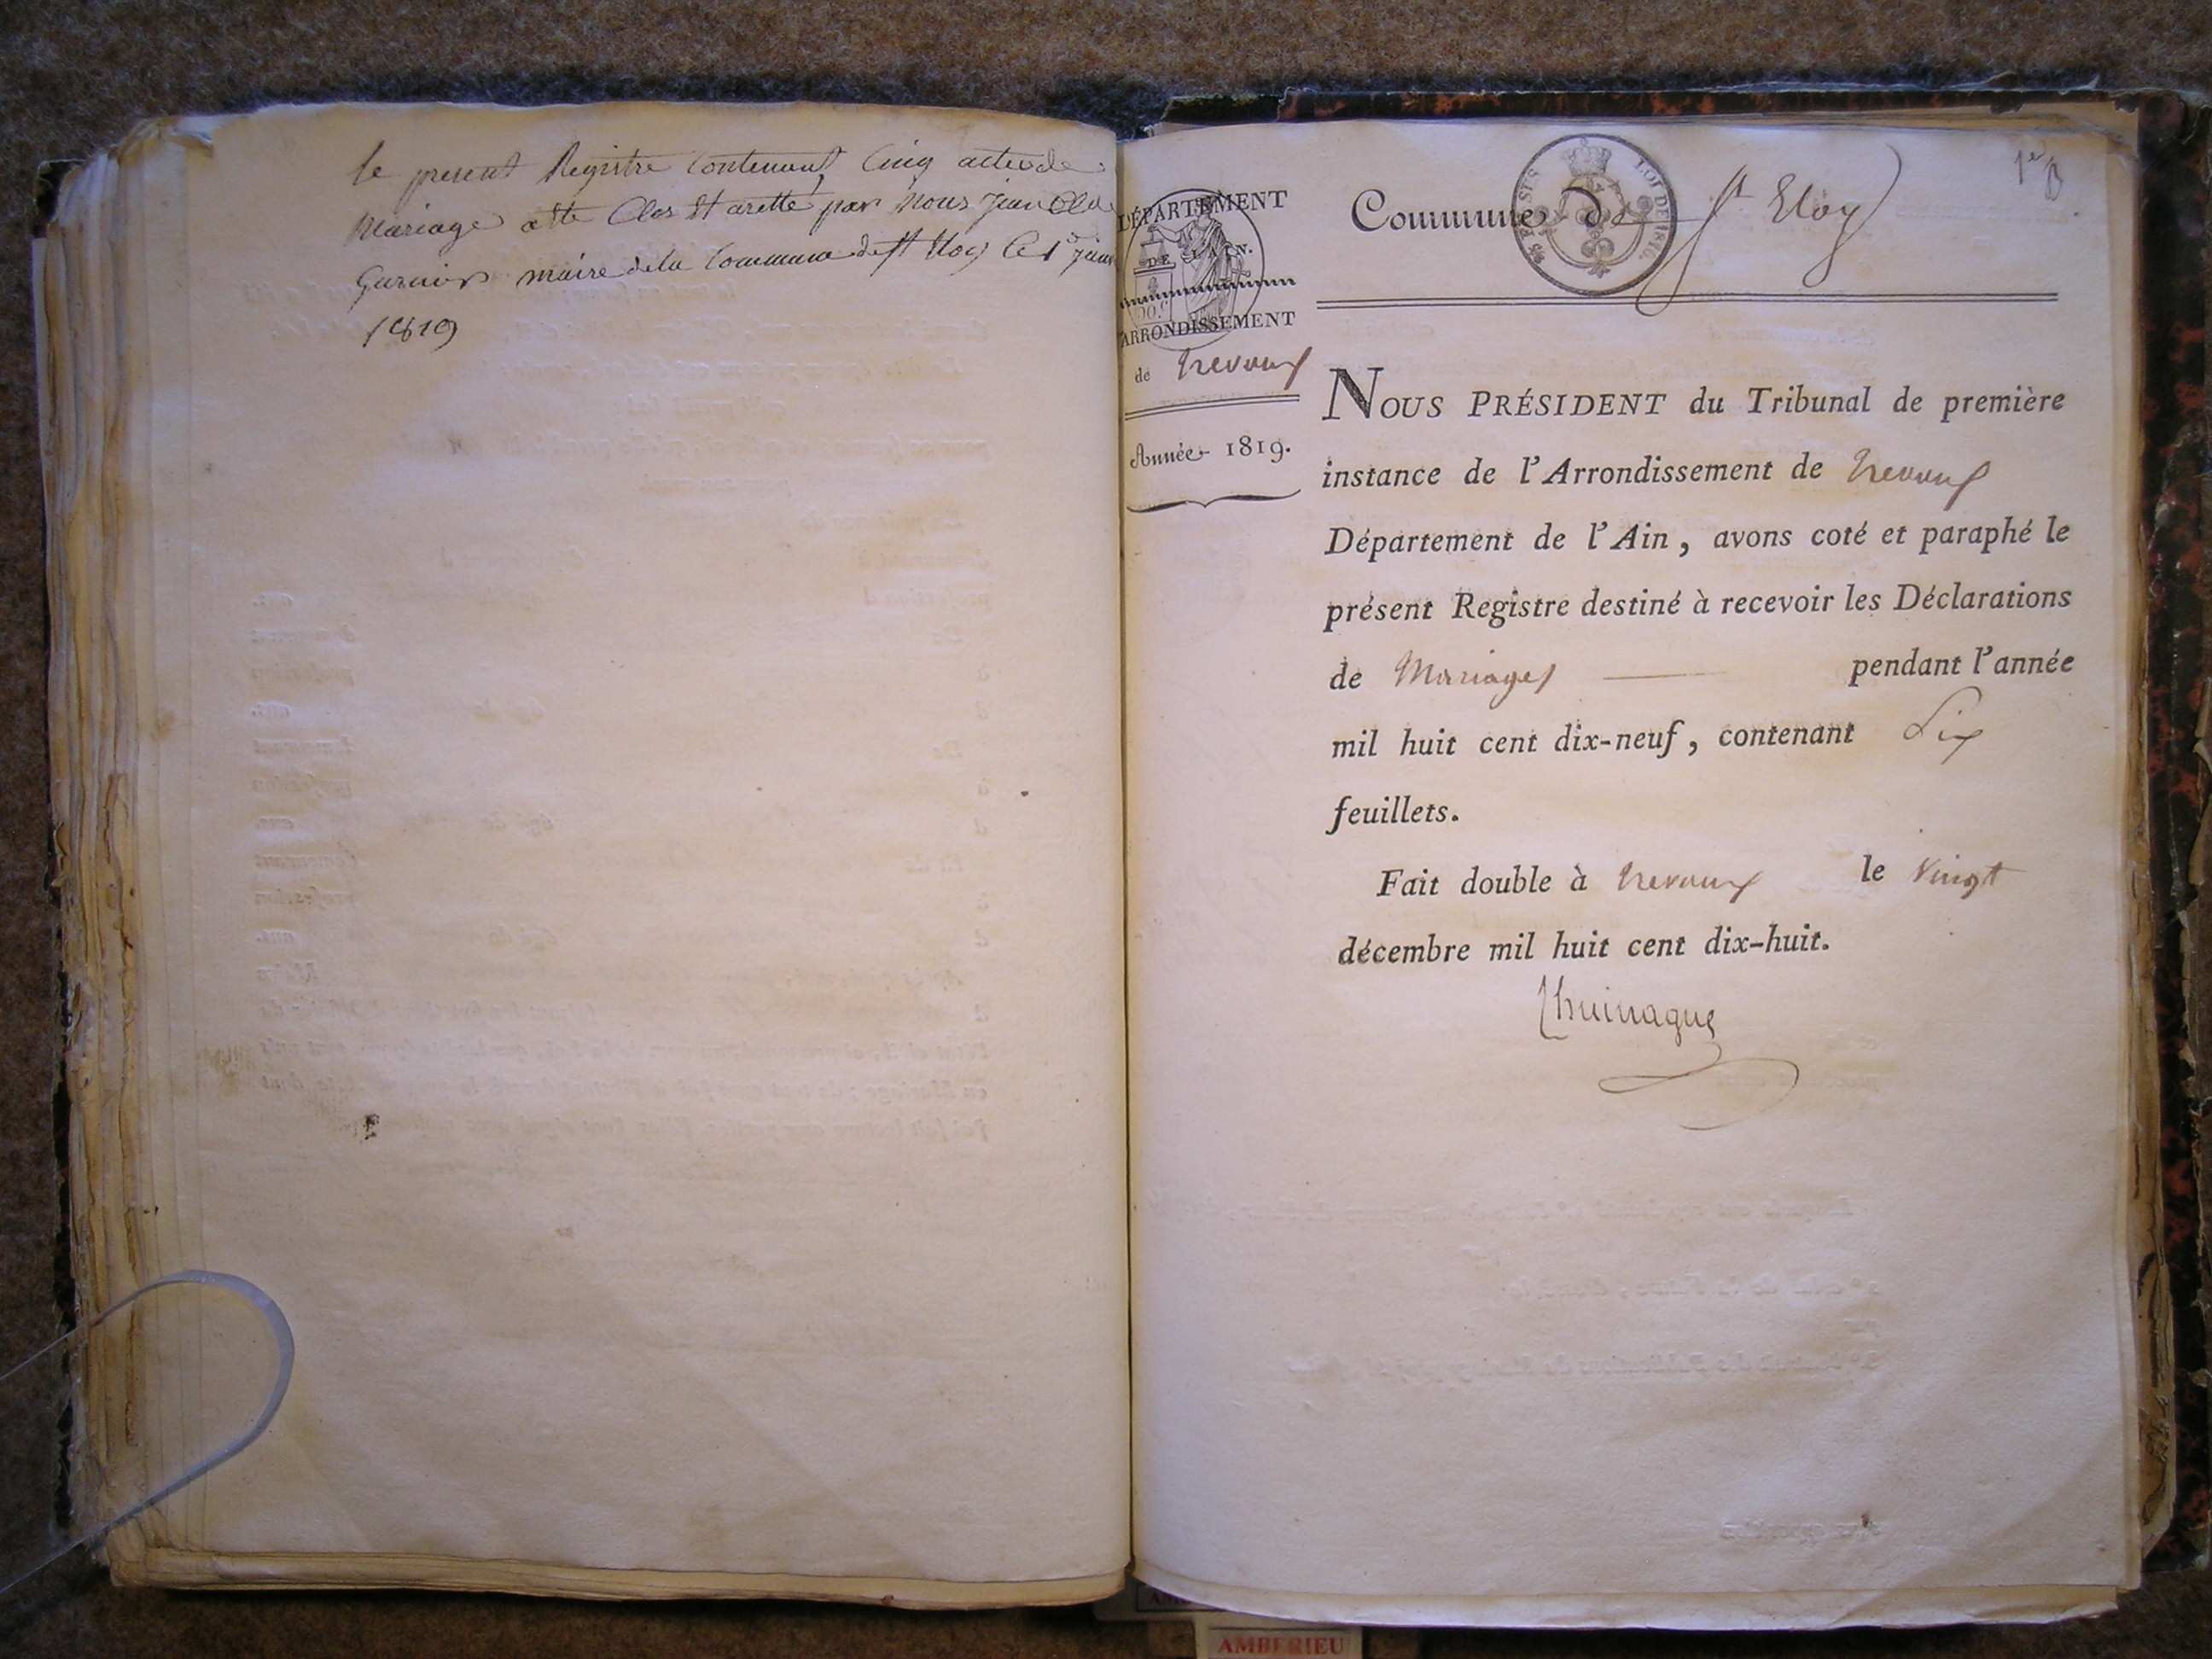 le present Registre Contenant Cinq acte de
Mariage a ete Clos et arette par Nous jean Cla
Garnier maire de la Commune de st Eloy le 1er janv
1819
DÉPARTEMENT
DE L'AIN.
ARRONDISSEMENT
de Trevoux
Année 1819.
Commune de St Eloy
1er
LOI DE 1816.
NOUS PRÉSIDENT du Tribunal de première
instance de l'Arrondissement de Trevoux
Département de l'Ain, avons coté et paraphé le
présent Registre destiné à recevoir les Déclarations
de Mariages pendant l'année
mil huit cent dix-neuf, contenant Six
feuillets.
Fait double à Trevoux le Vingt
décembre mil huit cent dix-huit.
AMBERIEU